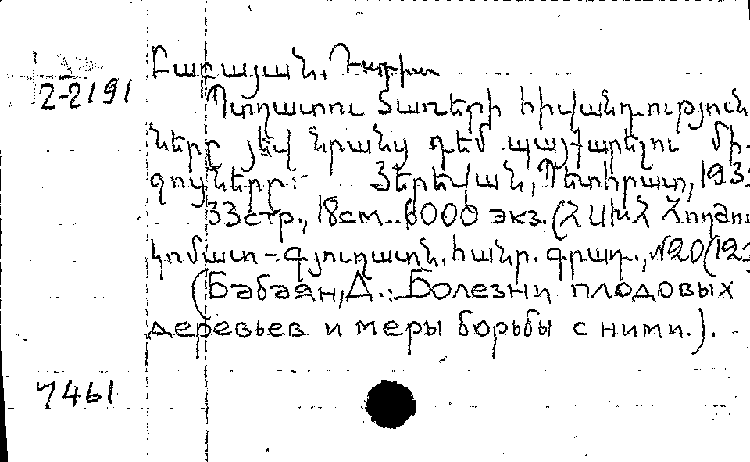 Բաբայան, Դավիտ
2-2191
Պտղատու ծառերի հիվանդություն-
ները յեվ նրանց դեմ պայքարելու մի-
ջոցները: Յերեվան, Պետհրատ, 193
33стр., 18см. 6000 экз. (ՀՍԽՀ Հողժո
կոմատ-Գյուղատն. հանր. գրադ., №20(123
(Бабаян, Д.: Болезни плодовых
деревьев и меры борьбы с ними.).
7461